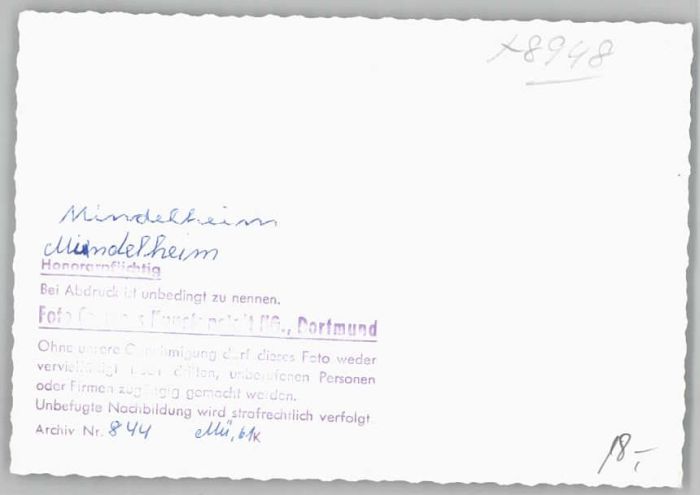 x8948
Mindelheim
Mindelheim
Honorarpflichtig
Bei Abdruck ist unbedingt zu nennen.
Foto KG., Dortmund
Ohne unsere Genehmigung darf dieses Foto weder
vervielfältigt noch dritten, unberufenen Personen
oder Firmen zugängig gemacht werden.
Unbefugte Nachbildung wird strafrechtlich verfolgt
Archiv Nr. 844
18,-